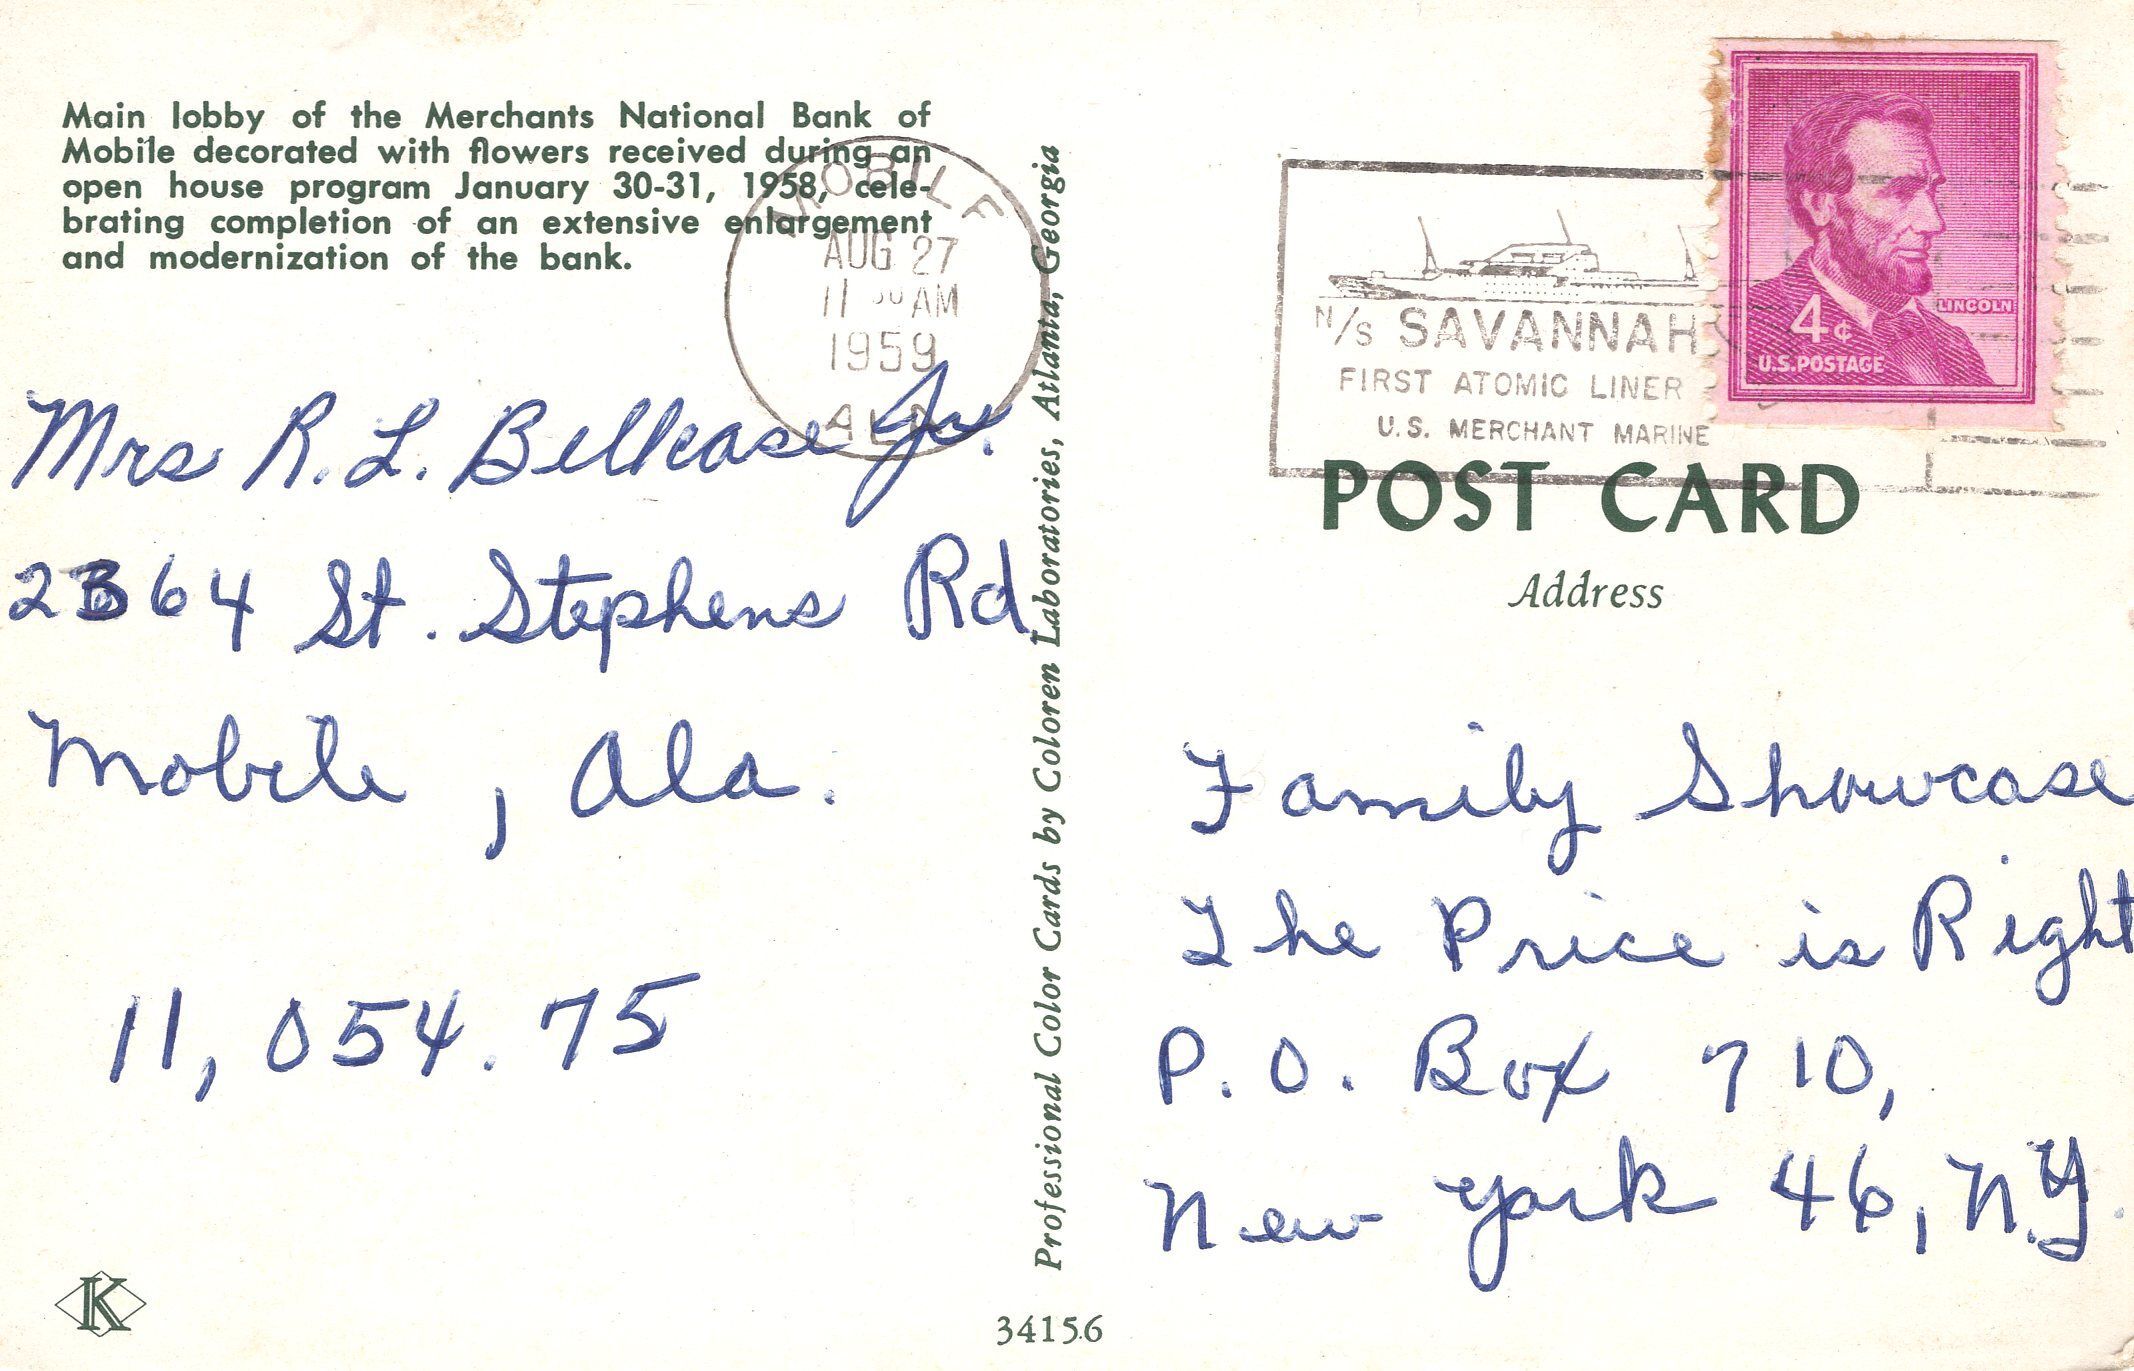 Main lobby of the Merchants National Bank of
Mobile decorated with flowers received during an
open house program January 30-31, 1958, cele-
brating completion of an extensive enlargement
and modernization of the bank.
MOBILE
AUG 27
11 AM
1959
ALA
Mrs R. L. Bellcase Jr.
2364 St. Stephens Rd
Mobile, Ala.
11,054.75
K
Professional Color Cards by Coloren Laboratories, Atlanta, Georgia
34156
LINCOLN
4¢
U.S. POSTAGE
N/S SAVANNAH
FIRST ATOMIC LINER
U.S. MERCHANT MARINE
POST CARD
Address
Family Showcase
The Price is Right
P.O. Box 710,
New York 46, N.Y.